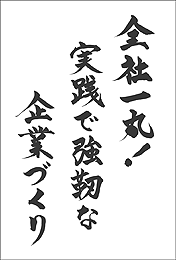 全社一丸！
実践で強靭な
企業づくり